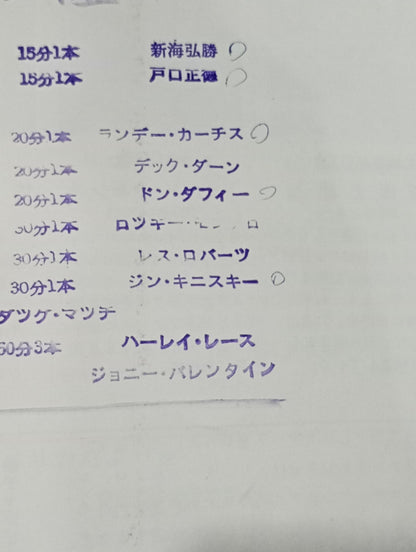 15分1本 新海弘勝
15分1本 戸口正徳
20分1本 ランデー・カーチス
20分1本 デック・ダーン
20分1本 ドン・ダフィー
30分1本 ロッキー・
30分1本 レス・ロバーツ
30分1本 ジン・キニスキー
ダッグ・マッチ
60分3本 ハーレイ・レース
ジョニー・バレンタイン